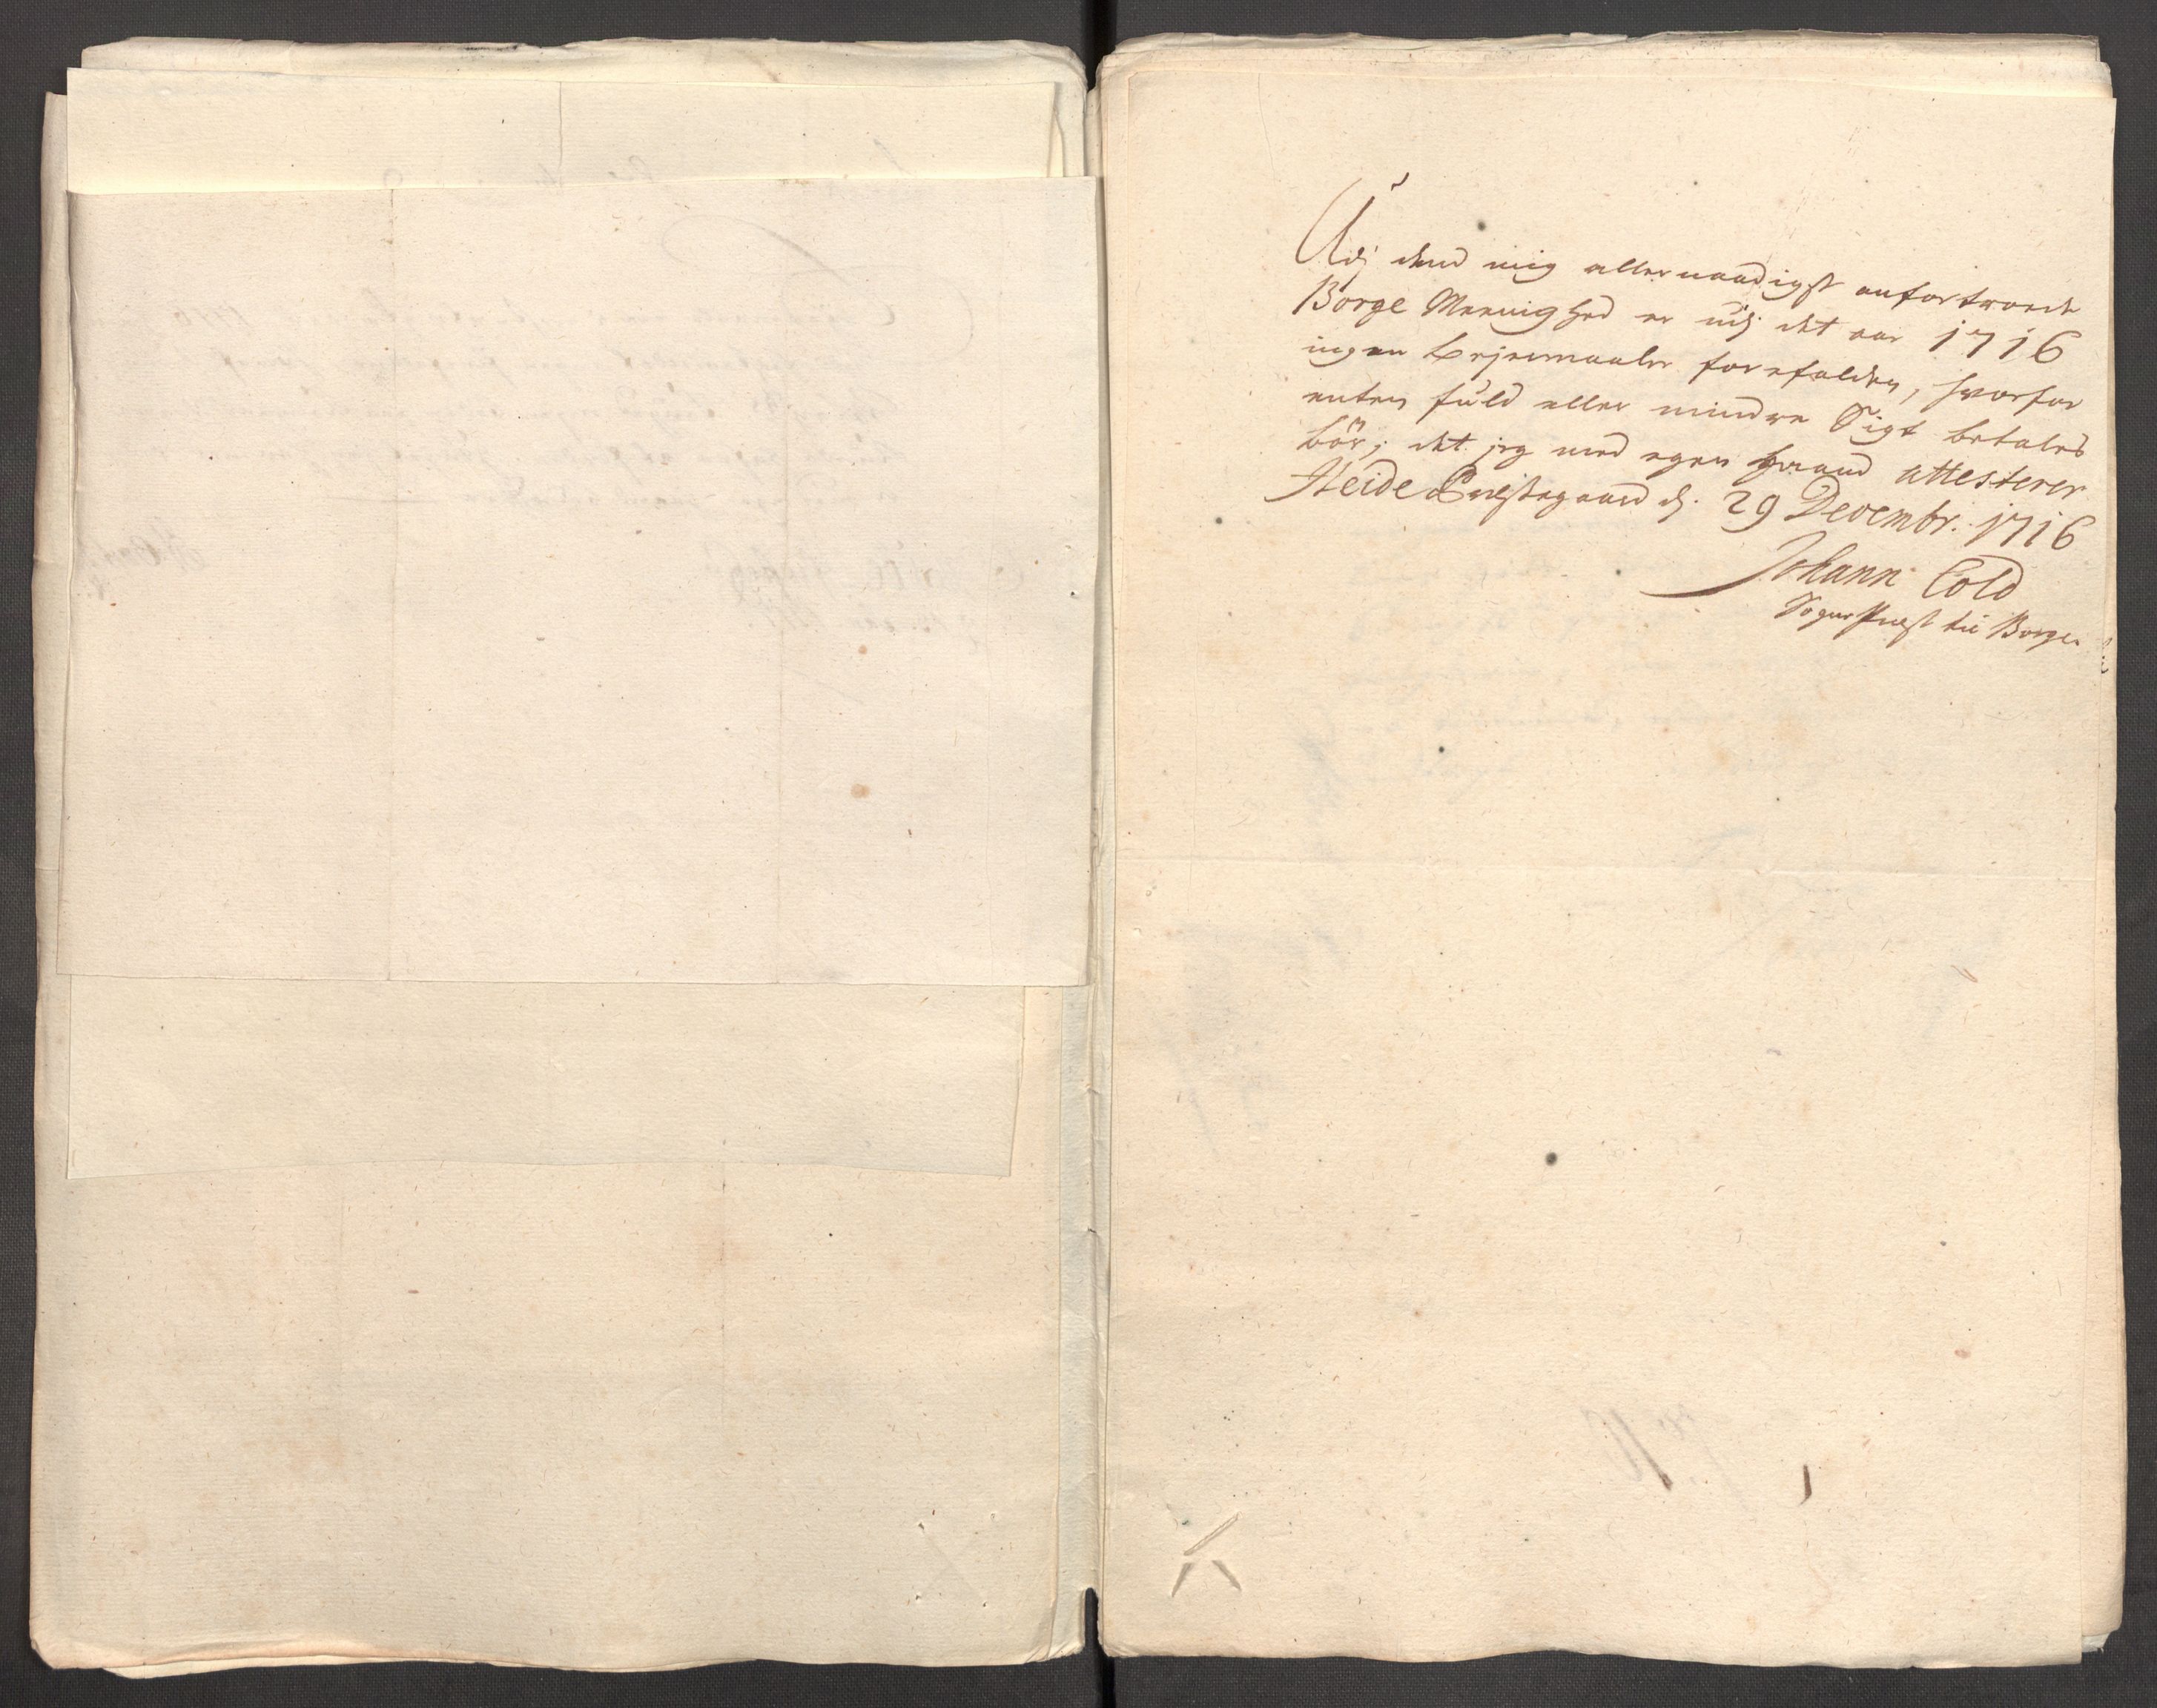 Udj dend mig allernaadigst anfortroede
Borge Meenighed er udj det aar 1716
ingen Lejermaaler forefalden, hvorfor
enten fuld eller mindre Sigt betales
bör; det jeg med egen Haand attesterer
Heide Præstegaard d. 29 Decembr. 1716
Johann Cold
Sogne Præst til Borge